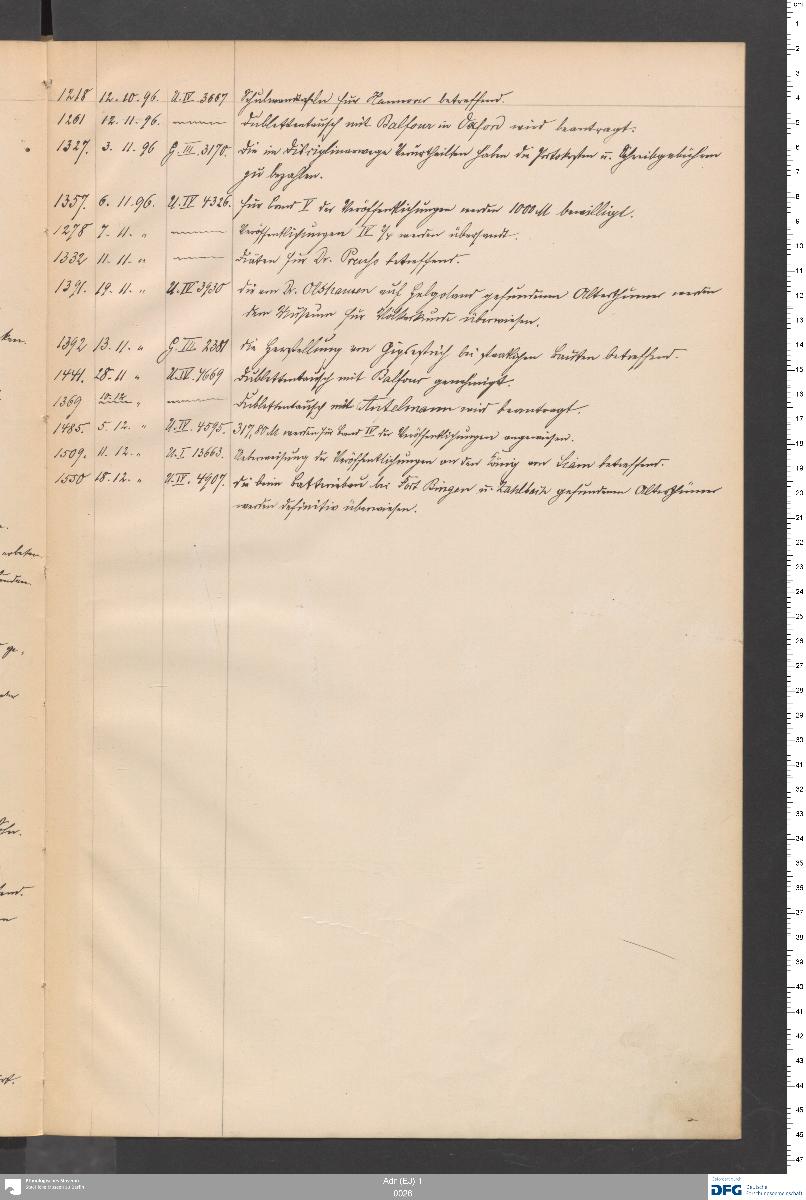 1218 12.10.96. U.IV. 3667 Schulwandtafeln für Hannover betreffend.
1261 12.11.96. Dublettentausch mit Balfour in Oxford wird beantragt.
1327. 3.11.96 G.III. 3170. Die im Disciplinarwege Verurtheilten haben die Portokosten u. Schreibgebühren
zu bezahlen.
1357. 6.11.96. U.IV 4326. Für Band V der Veröffentlichungen werden 1000 M bewilligt.
1278 7.11. " Veröffentlichungen IV werden übersandt.
1332 11.11. " Diäten für Dr. betreffend.
1391. 19.11. " U.IV. 3930 Die von Dr. Olshausen auf Helgoland gefundenen Alterthümer werden
dem Museum für Völkerkunde überwiesen.
1392 13.11. " G.III. 2381 Die Herstellung von Gipsestrich bei staatlichen Bauten betreffend.
1441. 28.11 " U.IV. 4669 Dublettentausch mit Balfour genehmigt.
1369 10.12. " Dublettentausch mit Antelmann wird beantragt.
1485. 5.12. " U.IV. 4595. 317,80 M werden für Band IV der Veröffentlichungen angewiesen.
1509. 11.12. " U.I 13663. Ueberweisung der Veröffentlichungen an den König von Siam betreffend.
1550 18.12. " U.IV. 4907. Die beim Batteriebau bei Fort Bingen u. Zahlbach gefundenen Alterthümer
werden definitiv überwiesen.
Ethnologisches Museum
Staatliche Museen zu Berlin
Adr (EJ) 1
0026
Gefördert durch
DFG Deutsche
Forschungsgemeinschaft